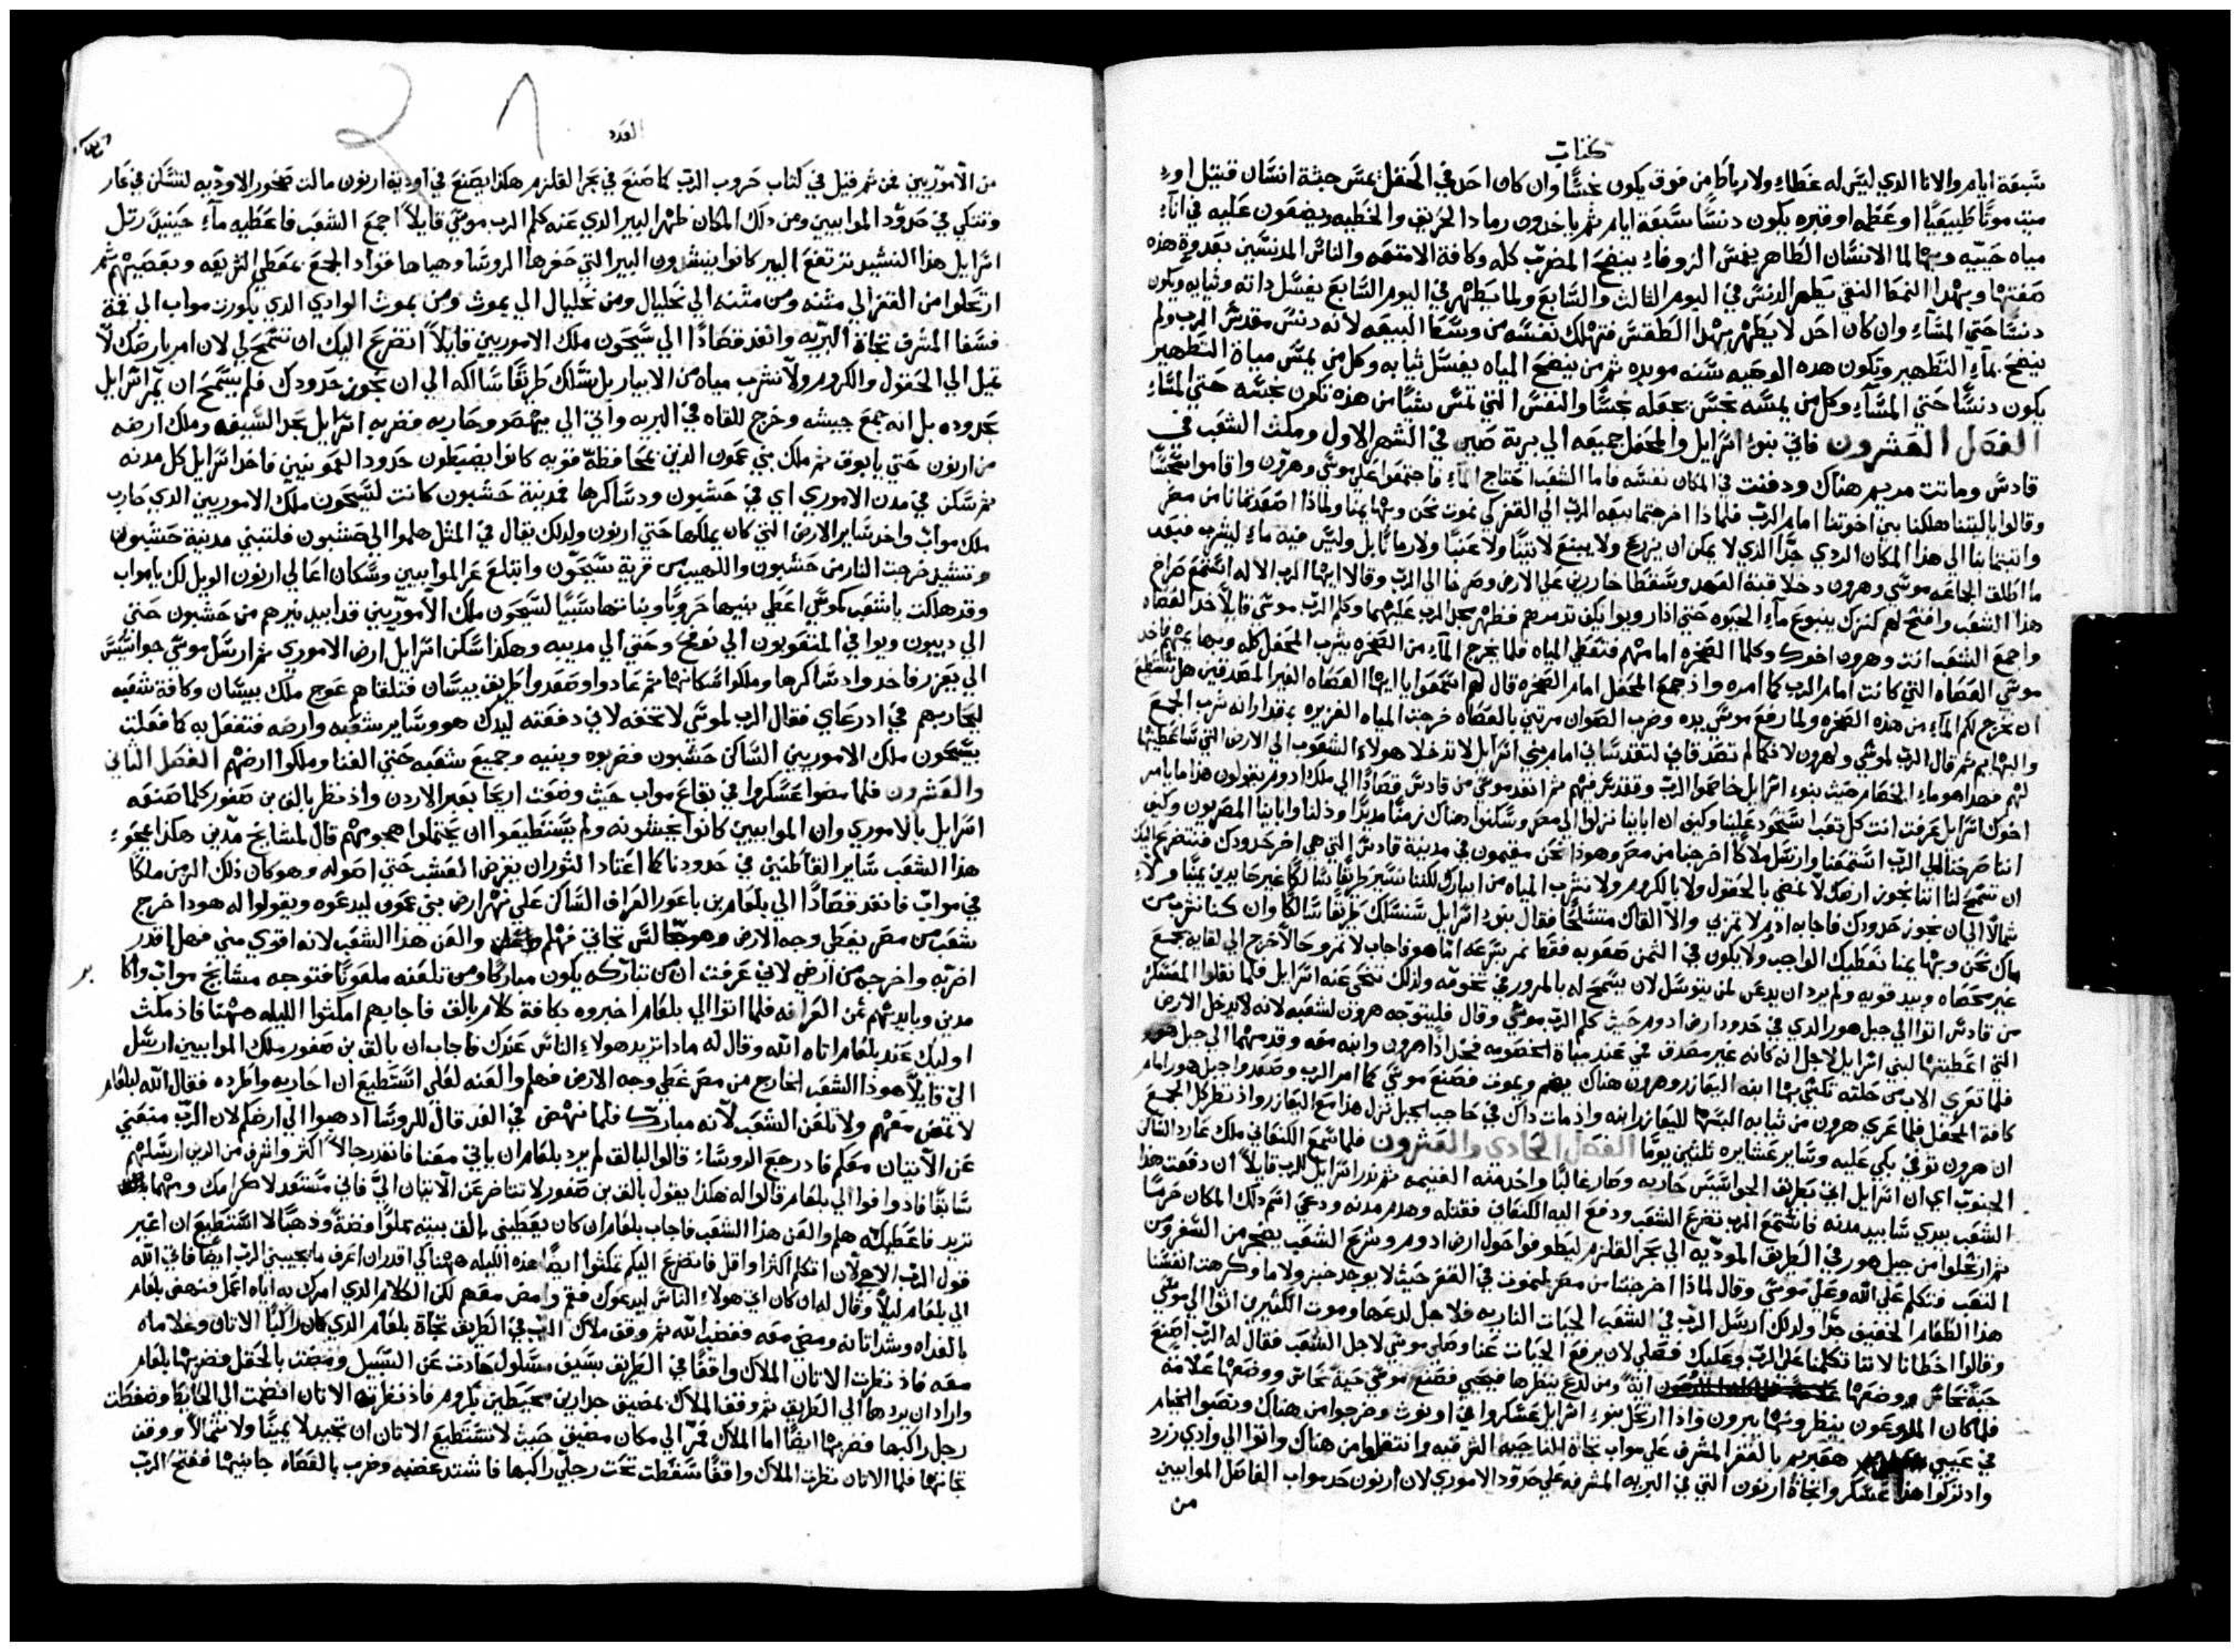 كتاب
سبعة ايام والانا الدي ليس له غطاء ولا رباط من فوق يكون نجسًا وان كان احد في الحقل يمس جيثة انسان قتيل او
ميت موتًا طبيعيًا او عظمه او قبره يكون دنسًا سبعة ايام ثم ياخدون رماد الحريق والخطيه ويضعون عليه في اناء
مياه حييه وبهالما الانسان الطاهر يغمس الزوفاء ينضح المضرب كله وكافة الامتعه والناس المدنسين بعدوة هذه
صفتها وبهدا النمط النقي يطهر الدنس في اليوم الثالت والسابع ولما يطهر في اليوم السابع يغسل داته وثيابه ويكون
دنسًا حتي المساء وان كان احد لا يطهر بهدا الطقس فتهلك نفسه من وسط البيعه لانه دنس مقدس الرب ولم
ينضح بماء التطهير وتكون هده الوصيه سنه موبده ثم من ينضح المياه يغسل ثيابه وكل من يمس مياة التطهير
يكون دنسًا حتي المساء وكل من يمسه نجس يجعله نجسًا والنفس التي تمس شيًا من هذه تكون نجسه حتي المساء
الفصل العشرون فاتي بنوء اسرايل والمحفل جميعه الي برية صين في الشهر الاول ومكث الشعب في
قادس وماتت مريم هناك ودفنت في المكان نفسه فاما الشعب احتاج الماء فاجتمعوا علي موسي وهرون واقاموا سجسًا
وقالوا ياليتنا هلكنا بين اخوتنا امام الرب فلماذا اخرجتما بيعه الرب الي القفر كي نموت نحن وبهايمنا ولماذا اصعدتمانا من مصر
واتيتمانا الي هذا المكان الردي جدًا الذي لا يمكن ان يزرع ولا ينبع لا تينًا ولا عنبًا ولا رمانًا بل وليس فيه ماء ليشرب فبعد
ما اطلق الجماعه موسي وهرون دخلا قبة العهد وسقطا خارين علي الارض وصرخا الي الرب وقالا ايها الرب الاله استمع صراخ
هذا الشعب وافتح لهم كنزك ينبوع ماء الحيوه حتي اذا رويوا يكف تدمرهم فظهر مجد الرب عليهما وكلم الرب موسي قايلًا خذ العصاه
واجمع الشعب انت وهرون اخوك وكلما الصخره امامهم فتعطي المياه فلما يخرج الماء من الصخره يشرب المحفل كله وبهايمهم فاخد
موسي العصاه التي كانت امام الرب كما امره واذ جمع المحفل امام الصخره قال لهم اسمعوا يا ايها العصاه الغير المصدقين هل نستطيع
ان نخرج لكم الماء من هذه الصخره ولما رفع موسي يده وضرب الصوان مرتين بالعصاه خرجت المياه الغزيره بمقدار انه شرب الجمع
والبهايم ثم قال الرب لموسي ولهرون لانكما لم تصدقاني لتقدساني امام بني اسرايل لا تدخلا هولاء الشعوب الي الارض التي ساعطيها
لهم فهدا هو ماء الخصام حيث بنوء اسرايل خاصموا الرب وتقدس فيهم ثم انفد موسي من قادس قصادًا الي ملك ادوم يقولون هذا ما يامر
اخوك اسرايل عرفت انت كل تعبنا سحود علينا وكيف ان اباينا نزلوا الي مصر وسكنوا هناك زمنًا مديدًا وذلنا واباينا المصريون وكيف
اننا صرخنا الي الرب استمعنا وارسل ملاكًا اخرجنا من مصر وهودا نحن مقيمون في مدينة قادس التي هي اخر حدودك فنتضرع اليك
ان تسمح لنا اننا نجوز ارضك لا نمضي بالحقول ولا بالكروم ولا نشرب المياه من ابيارك لكننا نسير طريقًا سالكًا غير حايدين يمينًا ولا
شمالًا الي ان نجوز حدودك فاجابه ادوم لا تمر بي والا القاك متسلحًا فقال بنوء اسرايل سنسلك طريقًا سالكًا وان كنا نشرب من
ماك نحن وبهايمنا نعطيك الواجب ولا يكون في الثمن صعوبه فقط نمر بسرعه اما هو فاجاب لا تمر وحالًا خرج الي لقايه بجمع
غير محصاه وبيد قويه ولم يرد ان يدعن لمن يتوسل لان يسمح له بالمرور في تخومه ولذلك تنحي عنه اسرايل فلما نقلوا المعسكر
من قادس اتوا الي جبل هور الدي في حدود ارض ادوم حيث كلم الرب موسي وقال فليتوجه هرون لشعبه لانه لا يدخل الارض
التي اعطيتها لبني اسرايل لاجل انه كانه غير مصدق في عند مياة الخصومه فخذ اذًا هرون وابنه معه وقدمهما الي جبل هور
فلما تعري الاب من حلته تكسي بها ابنه اليعازر وهرون هناك يضم ويموت فصنع موسي كما امر الرب وصعدوا جبل هور امام
كافة المحفل فلما عري هرون من ثيابه البسها لليعازر ابنه واذ مات داك في حاجب الجبل نزل هذا مع اليعازر واذ نظر كل الجمع
ان هرون توفي بكي عليه وساير عشايره تلتين يومًا الفصل الحادي والعشرون فلما سمع الكنعاني ملك عارد الساكن
الجنوب اي ان اسرايل اتي بطريق الجواسيس حاربه وصار غالبًا واخد منه الغنيمه ثم ندر اسرايل للرب قايلًا ان دفعت هدا
الشعب بيدي سابيد مدنه فاستمع الرب تضرع الشعب ودفع اليه الكنعاني فقتله وهدم مدنه ودعي اسم دلك المكان حرمًا
ثم ارتحلوا من جبل هور في الطريق الموديه الي بحر القلزم ليطوفوا حول ارض ادوم وشرع الشعب يضجر من السفر ومن
التعب فتكلم علي الله وعلي موسي وقال لماذا اخرجتنا من مصر لنموت في القفر حيث لا يوجد خبز ولا ما وكرهت انفسنا
هذا الطعام الخفيف جدًا ولدلك ارسل الرب في الشعب الحيات الناريه فلاجل لدعها وموت الكثيرين اتوا الي موسي
وقالوا اخطانا لاننا تكلمنا علي الرب وعليك فصلي لان يرفع الحيات عنا وصلي موسي لاجل الشعب فقال له الرب اصنع
حية نحاس ووضعها اية ومن لدع ينظرها فيحيي فصنع موسي حية نحاس ووضعها علامة
فلما كان الملدوعون ينظرونها يبرون واذا ارتحل بنوء اسرايل عسكروا في اوبوث وخرجوا من هناك ونصبوا الخيام
في عيي هعبريم بالقفر المشرف علي مواب تجاة الناحيه الشرقيه وانتقلوا من هناك واتوا الي وادي زرد
واد تركوا هذا عسكروا تجاة ارنون التي في البريه المشرفه علي حدود الاموري لان ارنون حد مواب الفاصل الموابيين
من
العدد
من الاموريين فمن ثم قيل في كتاب حروب الرب كما صنع في بحر القلزم هكدا يصنع في اودية ارنون مالت صخور الاوديه لتسكن في عار
وتتكي في حدود الموابيين ومن دلك المكان ظهر البير الدي عنه كلم الرب موسي قايلًا اجمع الشعب فاعطيه ماء حينيذ رتل
اسرايل هذا النشيد ترتفع البير كانوا ينشدون البير التي حفرها الروسا وهياها قواد الجمع بمعطي الشريعه وبعصيهم ثم
ارتحلوا من القفر الي متنه ومن متنه الي نحليال ومن نحليال الي بموث ومن بموث الوادي الدي بكورت مواب الي قمة
فسغا المشرف تجاة البريه وانفد قصادًا الي سيحون ملك الاموريين قايلًا اتضرع اليك ان تسمح لي لان امر بارضك لا
نميل الي الحقول والكروم ولا نشرب مياه من الابيار بل نسلك طريقًا سالكه الي ان نجوز حدودك فلم يسمح ان يمر اسرايل
بحدوده بل انه جمع جيشه وخرج للقاه في البريه واتي الي يهصر وحاربه فضربه اسرايل بحد السيف وملك ارضه
من ارنون حتي يابوق ثم ملك بني عمون الدين بمحافظة قويه كانوا يضبطون حدود العمونيين فاخد اسرايل كل مدنه
ثم سكن في مدن الاموري اي في حشبون ودساكرها فمدينة حشبون كانت لسيحون ملك الاموريين الدي حارب
ملك مواب واخد ساير الارض التي كان يملكها حتي ارنون ولدلك يقال في المثل هلموا الي حشبون فلتبني مدينة حشبون
وتتشيد خرجت النار من حشبون واللهيب من قرية سيحون وابتلع عر الموابيين وسكان اعالي ارنون الويل لك يا مواب
وقد هلكت يا شعب كموش اعطي بنيها هروبًا وبناتها سبيًا لسيحون ملك الاموريين قد ابيد نيرهم من حشبون حتي
الي ديبون وبوا في المتعوبون الي نوفح وحتي الي مدييه وهكدا سكن اسرايل ارض الاموري ثم ارسل موسي جواسيس
الي يعزر فاخدوا دساكرها وملكوا سكانها ثم عادوا وصعدوا طريق بيسان فتلقاهم عوج ملك بيسان وكافة شعبه
ليحاربهم في ادرعاي فقال الرب لموسي لا تخفه لاني دفعته ليدك هو وساير شعبه وارضه فتفعل به كما فعلت
بسيحون ملك الاموريين الساكن حشبون فضربوه وبنيه وجميع شعبه حتي الفنا وملكوا ارضهم الفصل الثاني
والعشرون فلما مضوا عسكروا في بقاع مواب حيث وضعت اريحا بعبر الاردن واذ نظر بالق بن صفور كلما صنعه
اسرايل بالاموري وان الموابيين كانوا يخشونه ولم يستطيعوا ان يحتملوا هجومهم قال لمشايخ مدين هكذا يمحوء
هذا الشعب ساير القاطنين في حدودنا كما اعتاد الثوران يقرض العشب حتي اصوله وهو كان ذلك الزمن ملكًا
في مواب فانفد قصادًا الي بلعام بن باعور العراف الساكن علي نهر ارض بني عمون ليدعوه ويقولوا له هودا خرج
شعب من مصر يغطي وجه الارض وهو جالس تجاهي فهلم والعن هذا الشعب لانه اقوي مني فهل اقدر
اضربه واخرجه من ارضي لاني عرفت ان من تباركه يكون مباركًا ومن تلعنه ملعونًا فتوجه مشايخ مواب واكا
بر مدين وبايديهم ثمن العرافه فلما اتوا الي بلعام اخبروه بكافة كلام بالق فاجابهم امكثوا الليله ههنا فاذ مكث
اوليك عند بلعام اتاه الله وقال له مادا تريد هولاء الناس عندك فاجاب ان بالق بن صفور ملك الموابيين ارسل
الي قايلًا هوذا الشعب الخارج من مصر غطي وجه الارض فهلم والعنه لعلي استطيع ان احاربه واطرده فقال الله لبلعام
لا تمض معهم ولا تلعن الشعب لانه مبارك فلما نهض في الغد قال للروسا ادهبوا الي ارضكم لان الرب منعني
عن الاتيان معكم فاد رجع الروساء قالوا لبالق لم يرد بلعام ان ياتي معنا فانفد رجالًا اكثر واشرف من الدين ارسلهم
سابقًا فاذ وافوا الي بلعام قالوا له هكذا يقول بالق بن صفور لا تتاخر عن الاتيان الي فاني مستعد لاكرامك ومهما
تريد فاعطيك هلم والعن هذا الشعب فاجاب بلعام ان كان يعطيني بالق بيته مملوًا فضة وذهبًا لا استطيع ان اغير
قول الرب الاهي لان اتكلم اكثر او اقل فاتضرع اليكم تمكثوا ايضًا هذه الليله ههنا كي اقدر ان اعرف ما يجيبني الرب ايضًا فاتي الله
الي بلعام ليلًا وقال له ان كان اتي هولاء الناس ليدعوك فقم وامض معهم لكن الكلام الدي امرك به اياه اعمل فنهض بلعام
بالغداه وشد اتانه ومضي معه فغضب الله ثم وقف ملاك الرب في الطريق تجاة بلعام الدي كان راكبًا الاتان وغلاماه
معه فاذ نظرت الاتان الملاك واقفًا في الطريق بسيف مسلول حادت عن السبيل ومضت بالحقل فضربها بلعام
واراد ان يردها الي الطريق ثم وقف الملاك بمضيق جدارين محيطين بكروم فاذ نظرته الاتان انضمت الي الحايط وضغطت
رجل راكبها فضربها ايضًا اما الملاك فمر الي مكان مضيق حيث لا تستطيع الاتان ان تحيد لا يمينًا ولا شمالًا ووقف
تجاهها فلما الاتان نظرت الملاك واقفًا سقطت تحت رجلي راكبها فاشتد غضبه وضرب بالعصاه جانبها ففتح الرب